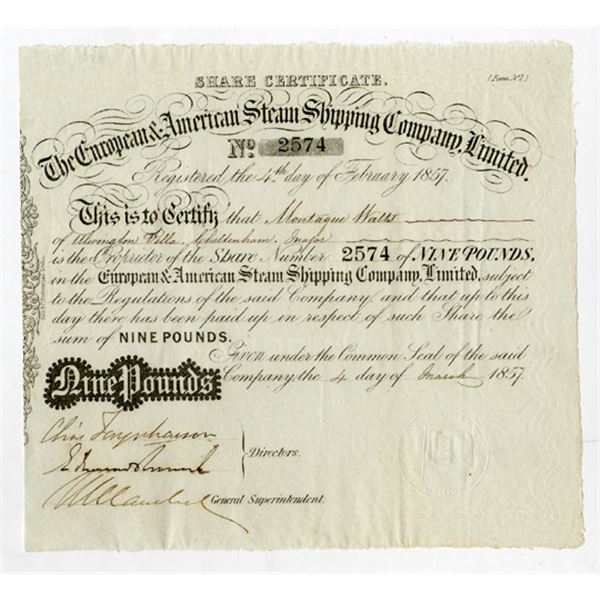 SHARE CERTIFICATE.
(Form No. 1.)
The European & American Steam Shipping Company, Limited.
No. 2574
Registered, the 4th day of February 1857.
This is to Certify that Montague Watts
of Villa, Cheltenham,
is the Proprietor of the Share Number 2574 of NINE POUNDS,
in the European & American Steam Shipping Company, Limited, subject
to the Regulations of the said Company. and that up to this
day there has been paid up in respect of such Share the
sum of NINE POUNDS.
Given under the Common Seal of the said
Company, the 4 day of March 1857.
Nine Pounds
Directors.
General Superintendent.